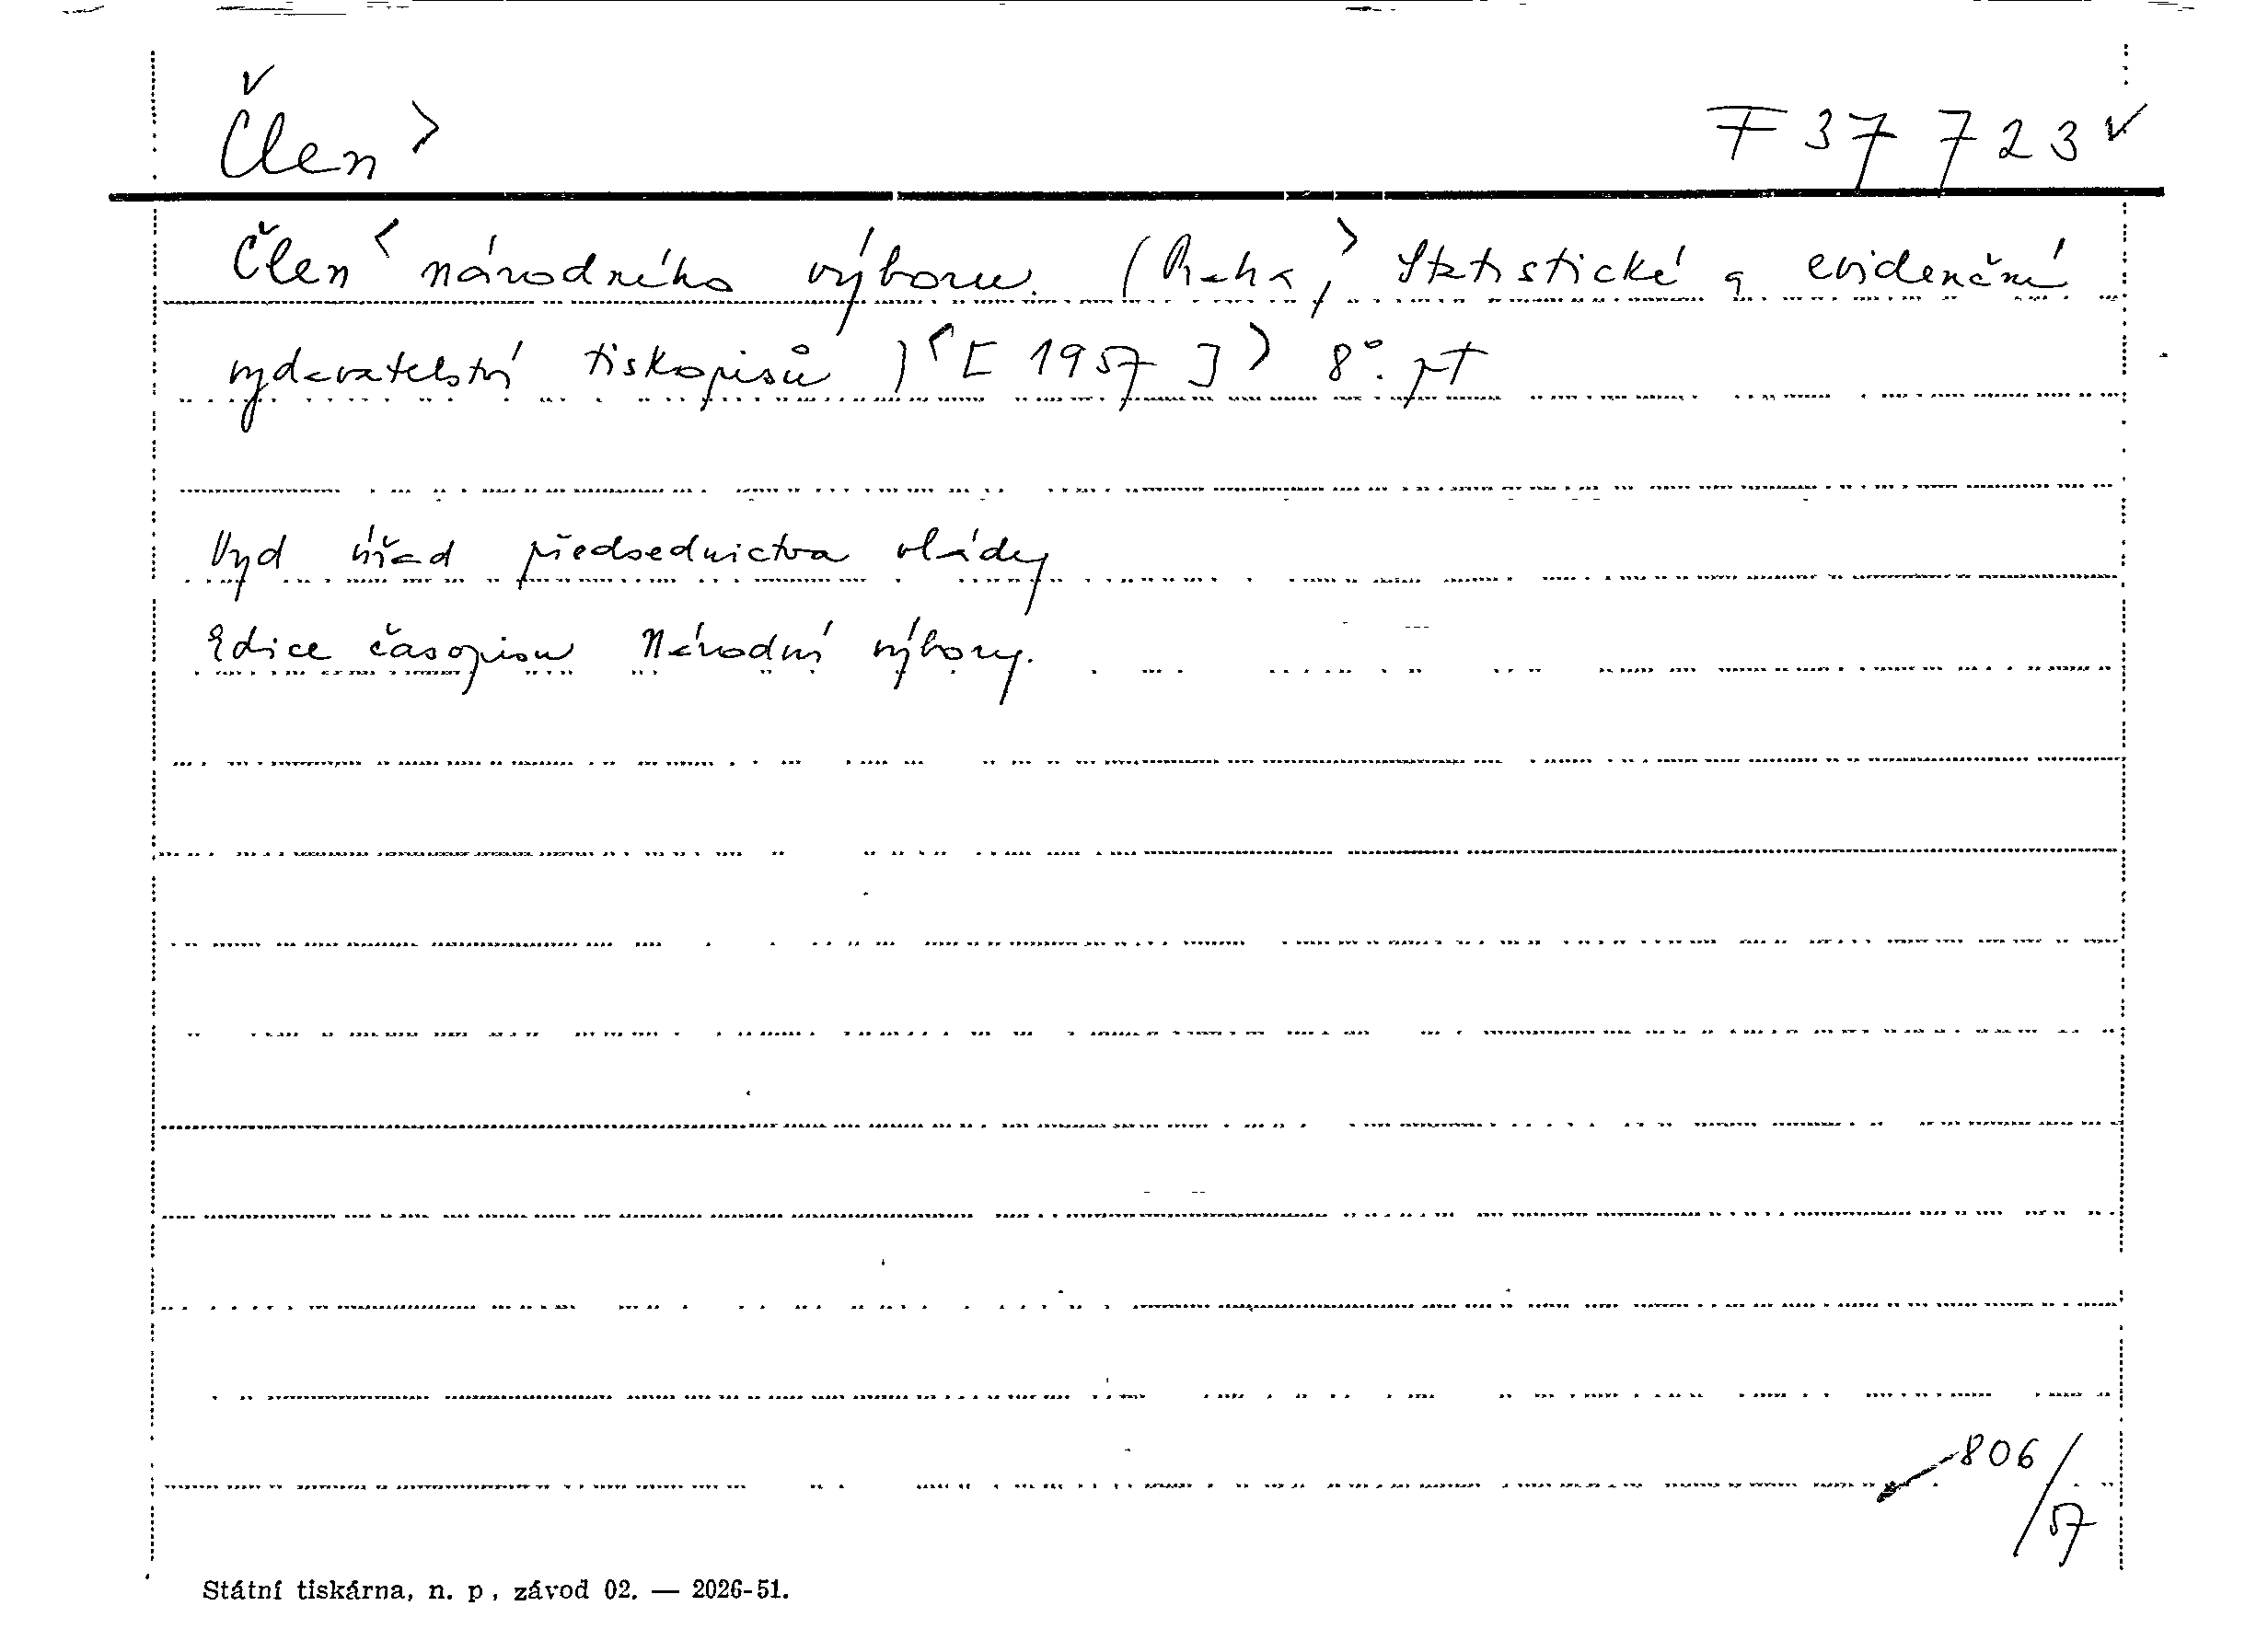 Člen> F 37 723
Člen< národního výboru. (Praha,> Statistické a evidenční
vydavatelství tiskopisů )<[ 1957 ]> 8°.
Vyd úřad předsednictva vlády
Edice časopisu Národní výbory.
806/57
Státní tiskárna, n. p, závod 02. — 2026-51.